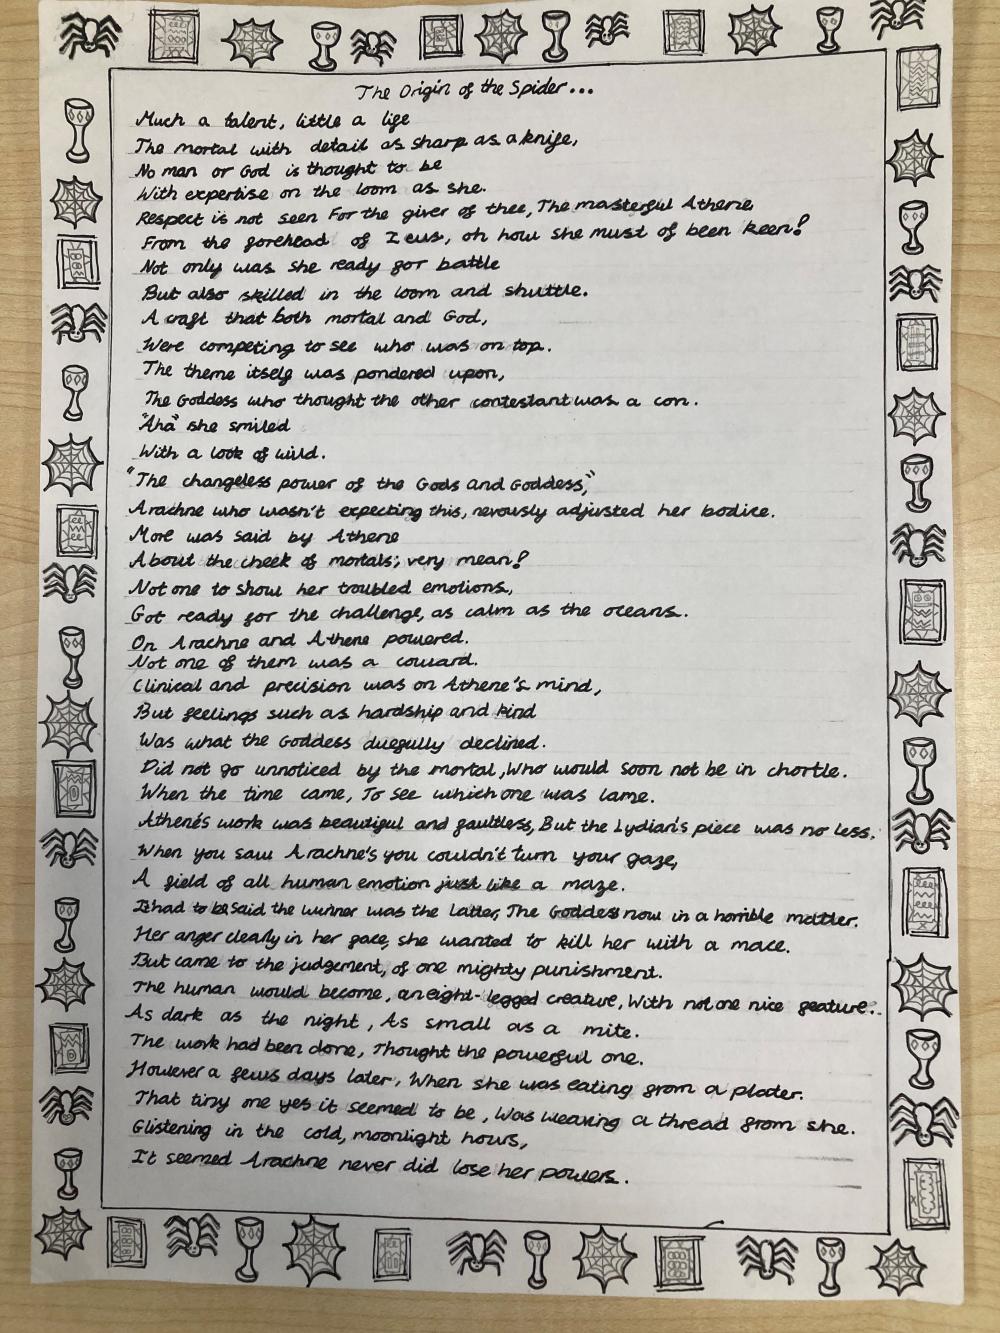 The Origin of the Spider...
Much a talent, little a life
The mortal with detail as sharp as a knife,
No man or God is thought to be
With expertise on the loom as she.
Respect is not seen For the giver of thee, The masterful Athene
From the forehead of Zeus, oh how she must of been keen!
Not only was she ready for battle
But also skilled in the loom and shuttle.
A craft that both mortal and God,
Were competing to see who was on top.
The theme itself was pondered upon,
The Goddess who thought the other contestant was a con.
"Aha" she smiled
With a look of wild.
"The changeless power of the Gods and Goddess,"
Arachne who wasn't expecting this, nevously adjusted her bodice.
More was said by Athene
About the cheek of mortals; very mean!
Not one to show her troubled emotions,
Got ready for the challenge, as calm as the oceans.
On Arachne and Athene powered.
Not one of them was a coward.
Clinical and precision was on Athene's mind,
But feelings such as hardship and kind
Was what the Goddess duefully declined.
Did not go unnoticed by the mortal, Who would soon not be in chortle.
When the time came, To see which one was lame.
Athene's work was beautiful and faultless, But the Lydian's piece was no less.
When you saw Arachne's you couldn't turn your gaze,
A field of all human emotion just like a maze.
It had to be said the winner was the latter, The Goddess now in a horrible matter.
Her anger clearly in her face, she wanted to kill her with a mace.
But came to the judgement, of one mighty punishment.
The human would become, an eight-legged creature, With not one nice feature.
As dark as the night, As small as a mite.
The work had been done, Thought the powerful one.
However a fews days later, When she was eating from a plater.
That tiny one yes it seemed to be, Was weaving a thread from she.
Glistening in the cold, moonlight hours,
It seemed Arachne never did lose her powers.